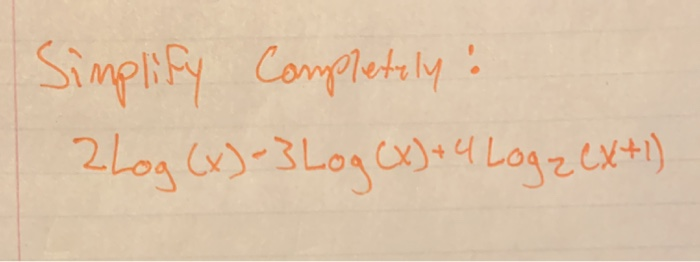 Simplify Completely:
2Log(x)-3Log(x)+4Log₂(x+1)